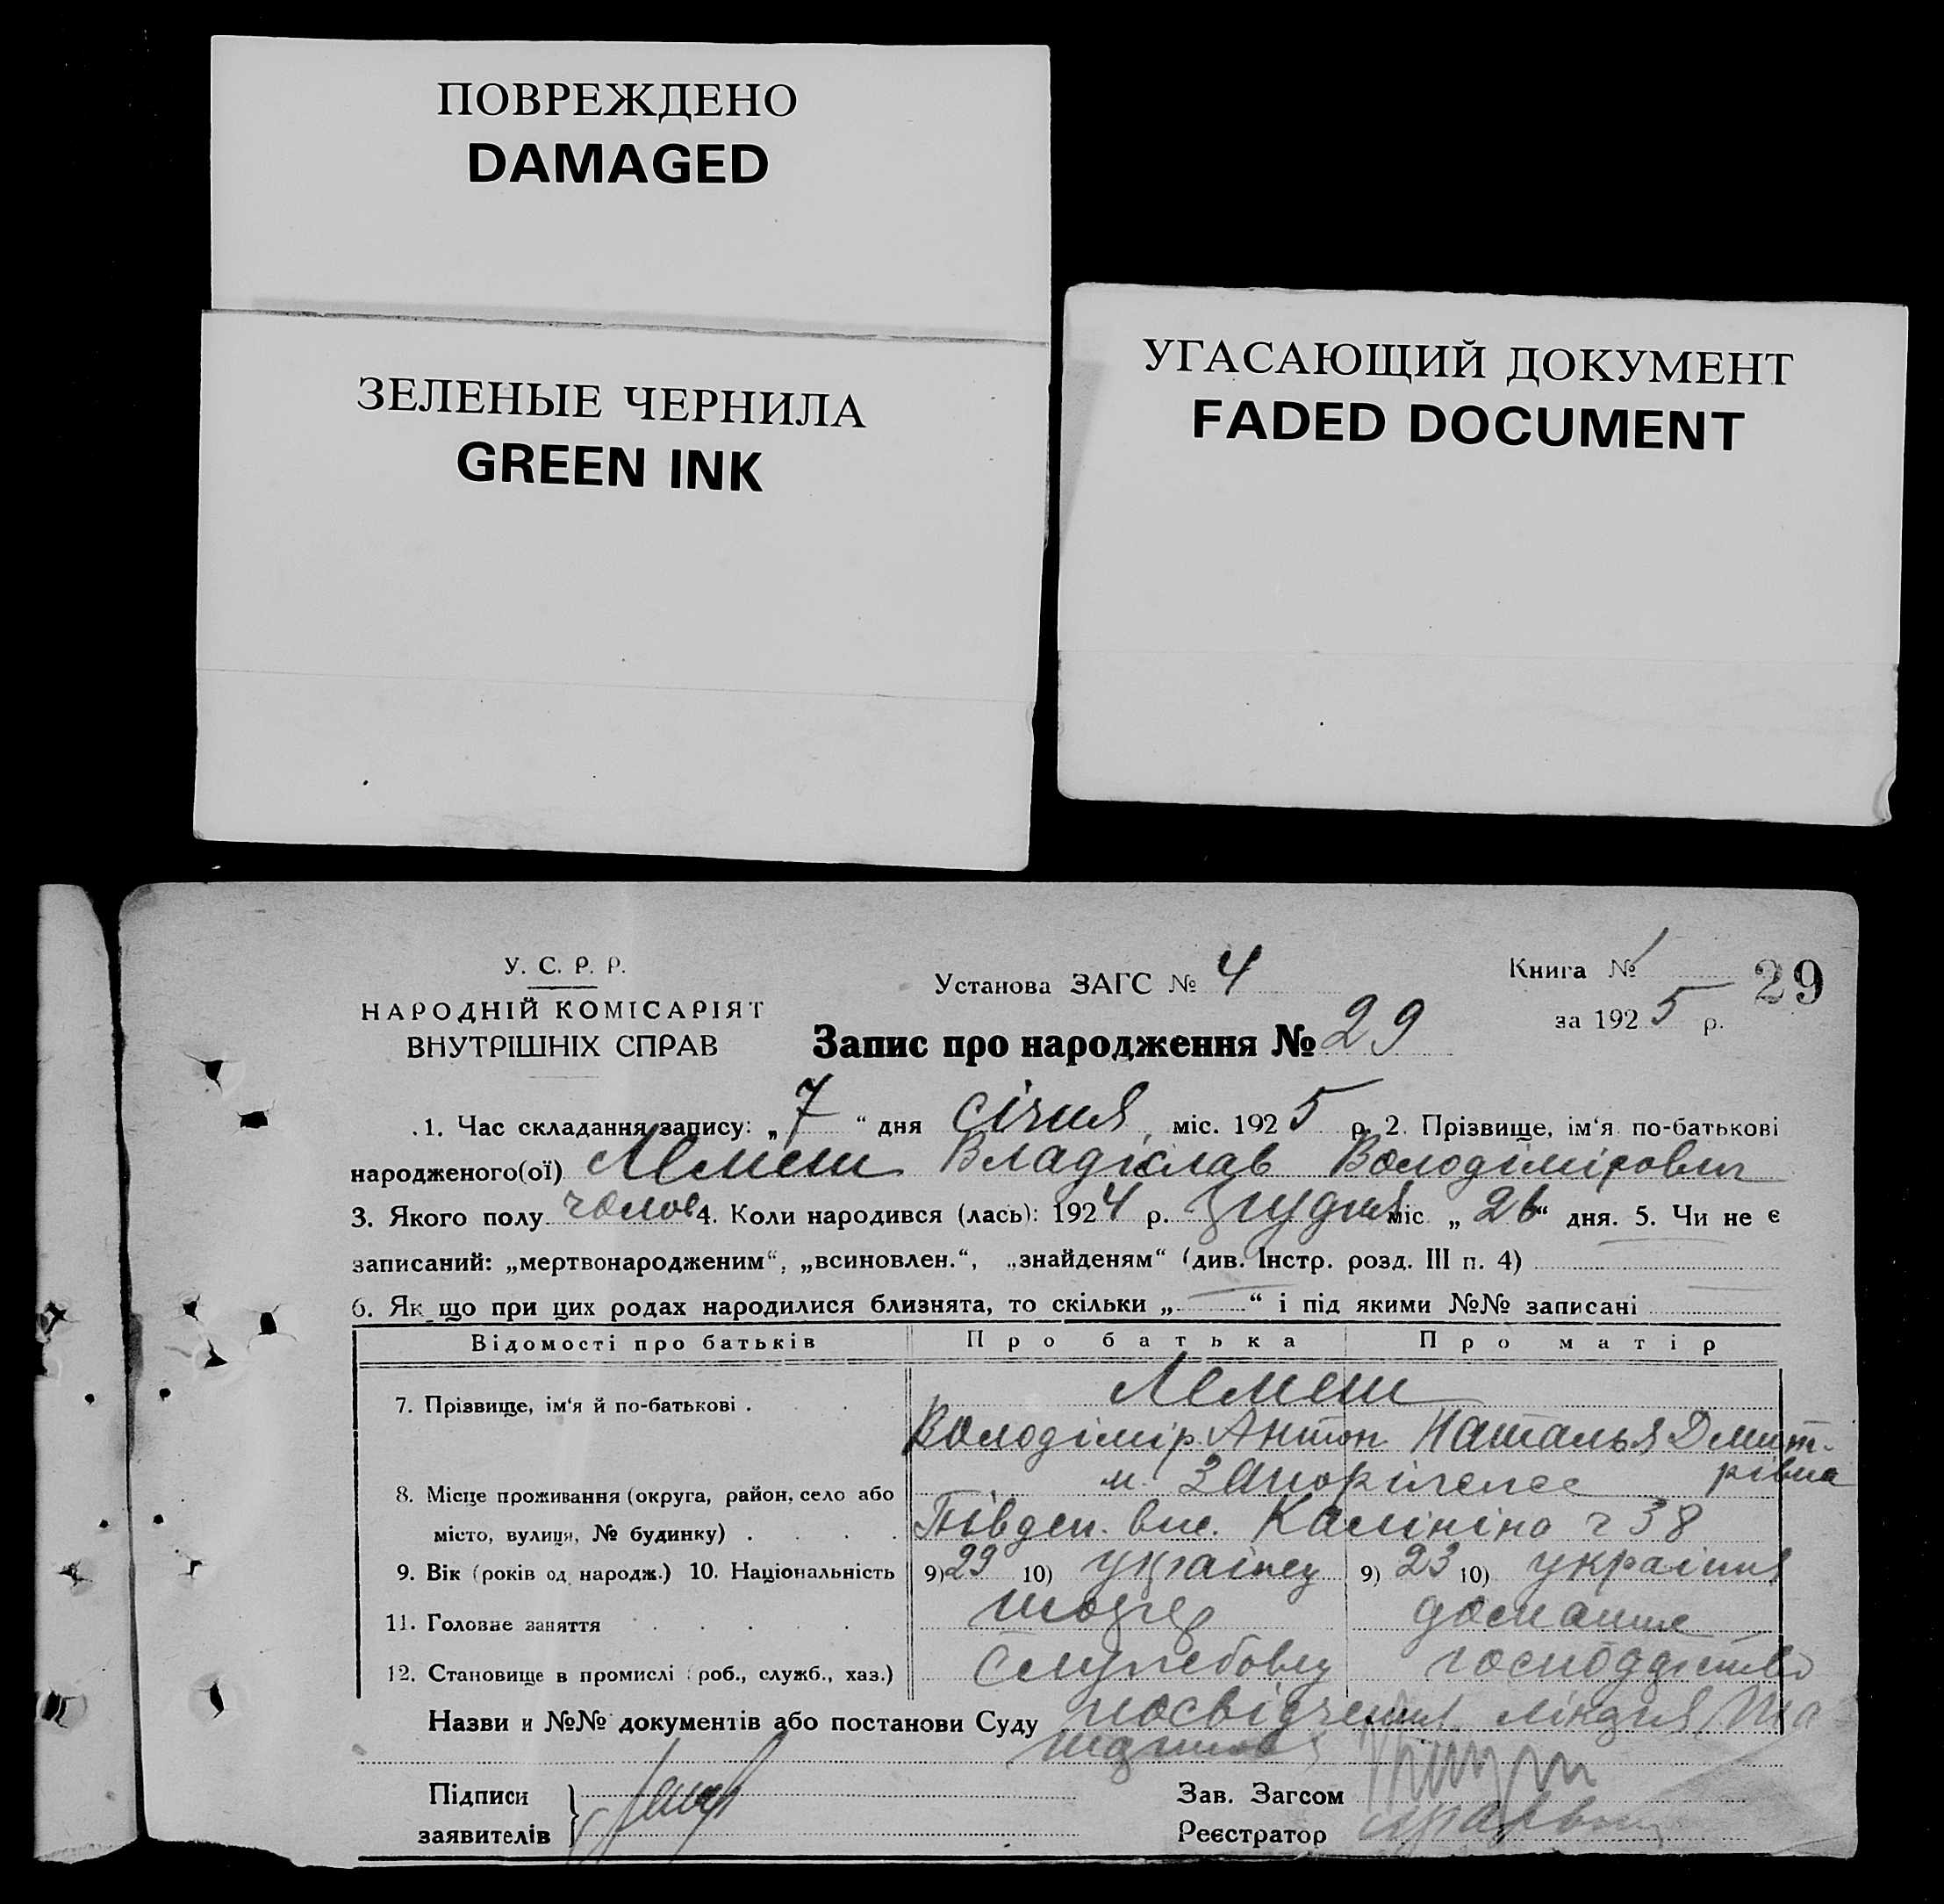 ПОВРЕЖДЕНО
DAMAGED
ЗЕЛЕНЫЕ ЧЕРНИЛА
GREEN INK
УГАСАЮЩИЙ ДОКУМЕНТ
FADED DOCUMENT
У. С. Р. Р.
НАРОДНІЙ КОМІСАРІЯТ
ВНУТРІШНІХ СПРАВ
Установа ЗАГС № 4
Книга № 1
29
за 1925 р.
Запис про народження № 29
1. Час складання запису: „7“ дня січня, міс. 1925 р. 2. Прізвище, ім‘я по-батькові
народженого(ої) Лемеш Владіслав Володімірович
3. Якого полу чолов 4. Коли народився (лась): 1924 р. грудня міс „26“ дня. 5. Чи не є
записаний: „мертвонародженим“, „всиновлен.“, „знайденям“ (див. Інстр. розд. III п. 4)
6. Як що при цих родах народилися близнята, то скільки „—“ і під якими №№ записані
Відомості про батьків Про батька Про матір
7. Прізвище, ім‘я й по-батькові . Лемеш
Володімір Антон Наталья Дмит-
рівна
8. Місце проживання (округа, район, село або м. Запоріжжє
місто, вулиця, № будинку) Півден. вис. Калініна 38
9. Вік (років од народж.) 10. Національність 9) 29 10) українец 9) 23 10) україння
11. Головне заняття домашнє
12. Становище в промислі (роб., служб., хаз.) Службовец господдіство
Назви и №№ документів або постанови Суду посвідчення
Підписи
заявителів
Зав. Загсом
Реєстратор